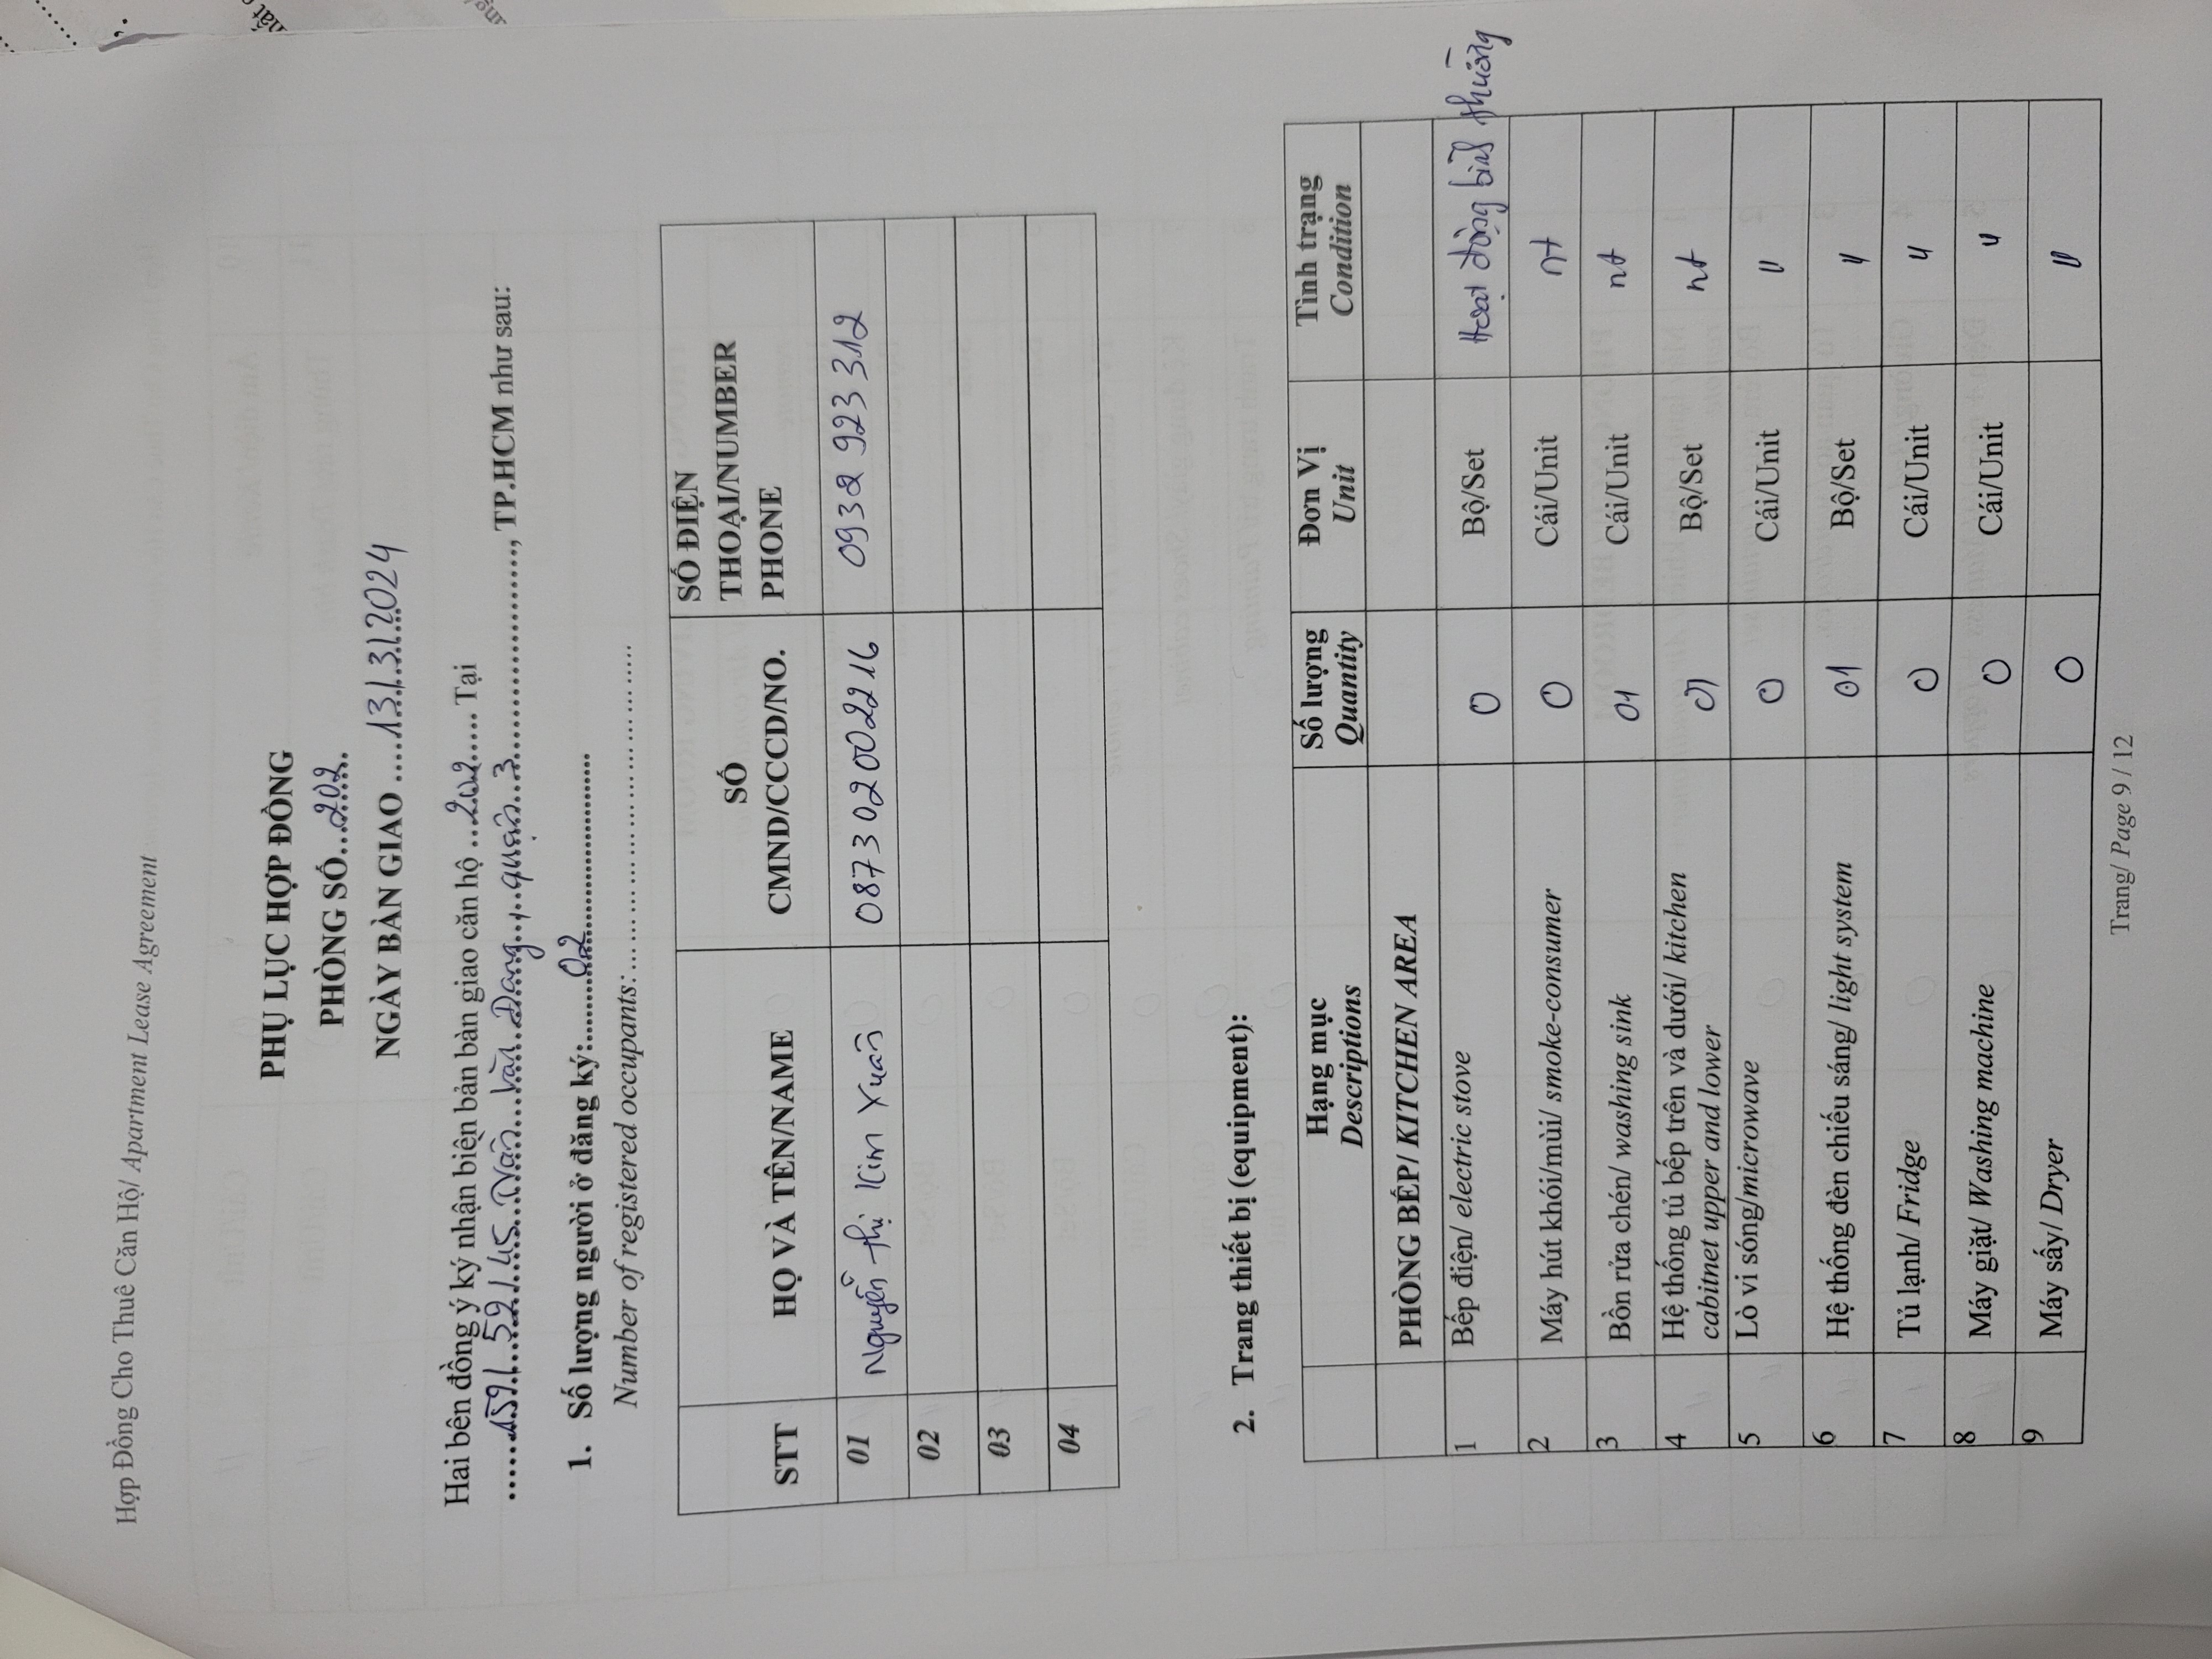 Hợp Đồng Cho Thuê Căn Hộ/ Apartment Lease Agreement
PHỤ LỤC HỢP ĐỒNG
PHÒNG SỐ...202...
NGÀY BÀN GIAO ....13/3/2024
Hai bên đồng ý ký nhận biên bản bàn giao căn hộ ...202..... Tại
.....159/52/45 Trần Văn Đang, quận 3......................., TP.HCM như sau:
1. Số lượng người ở đăng ký:..........02........................
Number of registered occupants:....................................
STT HỌ VÀ TÊN/NAME SỐ CMND/CCCD/NO. SỐ ĐIỆN THOẠI/NUMBER PHONE
01 Nguyễn Thị Kim Xuân 087302002216 0932 923 312
02
03
04
2. Trang thiết bị (equipment):
Hạng mục Descriptions Số lượng Quantity Đơn Vị Unit Tình trạng Condition
PHÒNG BẾP/ KITCHEN AREA
1 Bếp điện/ electric stove 0 Bộ/Set Hoạt động bình thường
2 Máy hút khói/mùi/ smoke-consumer 0 Cái/Unit nt
3 Bồn rửa chén/ washing sink 01 Cái/Unit nt
4 Hệ thống tủ bếp trên và dưới/ kitchen 01 Bộ/Set nt
cabitnet upper and lower
5 Lò vi sóng/microwave 0 Cái/Unit "
6 Hệ thống đèn chiếu sáng/ light system 01 Bộ/Set "
7 Tủ lạnh/ Fridge 0 Cái/Unit "
8 Máy giặt/ Washing machine 0 Cái/Unit "
9 Máy sấy/ Dryer 0 "
Trang/ Page 9 / 12